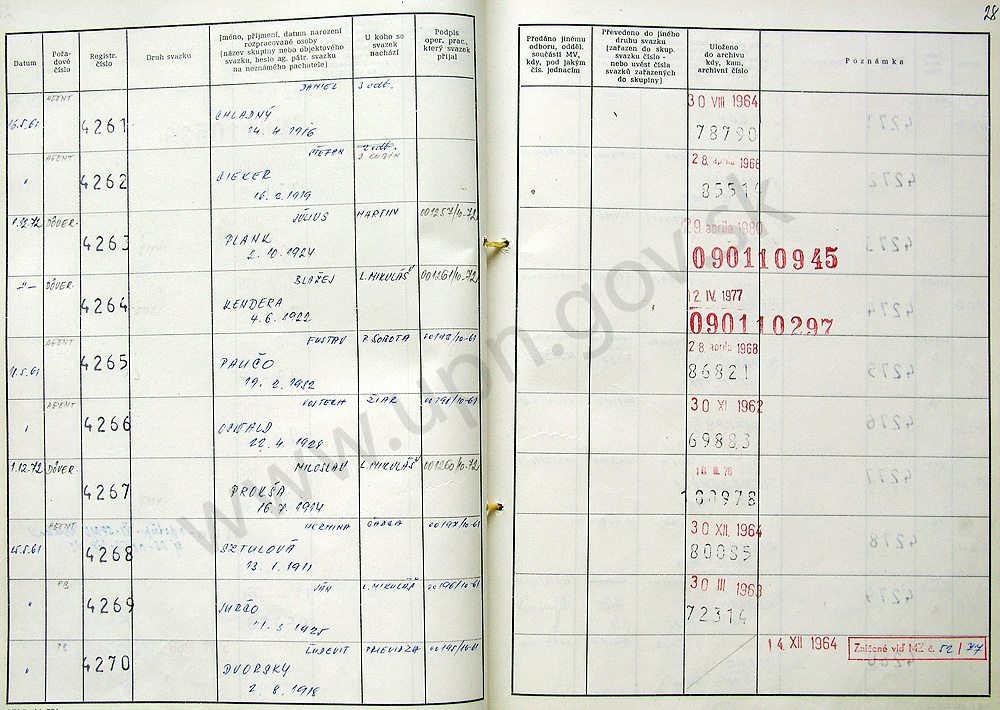 28
Datum
Pořa-
dové
číslo
Registr.
číslo
Druh svazku
Jméno, příjmení, datum narození
rozpracované osoby
(název skupiny nebo objektového
svazku, heslo ag. pátr. svazku
na neznámého pachatele)
U koho se
svazek
nachází
Podpis
oper. prac.,
který svazek
přijal
Předáno jinému
odboru, odděl.
součásti MV,
kdy, pod jakým
čís. jednacím
Převedeno do jiného
druhu svazku
(zařazen do skup.
svazku číslo -
nebo uvést čísla
svazků zařazených
do skupiny)
Uloženo
do archivu
kdy, kam,
archivní číslo
Poznámka
AGENT DANIEL 3 odd.
4261 CHLADNÝ
14. 4. 1916
30 VIII 1964
78790
AGENT ŠTEFAN 2 odd.
4262
16. 2. 1919
28. apríla 1968
85514
1.12.72 DÔVER. JÚLIUS MARTIN 001257/10-72
4263 PLANK
2. 10. 1924
29. apríla 1980
090110945
-"- DÔVER. BLAŽEJ L. MIKULÁŠ 001261/10-72
4264 KENDERA
4. 6. 1922
12. IV. 1977
090110297
AGENT GUSTAV R. SOBOTA
4265 PAUČO
19. 2. 1912
28 apríla 1968
86821
AGENT VOJTECH ŽIAR
4266 OSWALD
22. 4. 1928
30 XI 1962
69883
1.12.72 DÔVER. MILOSLAV L. MIKULÁŠ 001260/10-72
4267 PROKŠA
16. 7. 1914
100978
AGENT HERMINA ČADCA
25.5.61 4268 SZTULOVÁ
13. 1. 1911
30 XII. 1964
80085
PB JÁN L. MIKULÁŠ
4269
11. 3. 1925
30 III 1963
72314
PB ĽUDEVIT PRIEVIDZA
4270 DVORSKÝ
2. 8. 1918
14 XII 1964
Zničené viď MZ č. 52/
www.upn.gov.sk